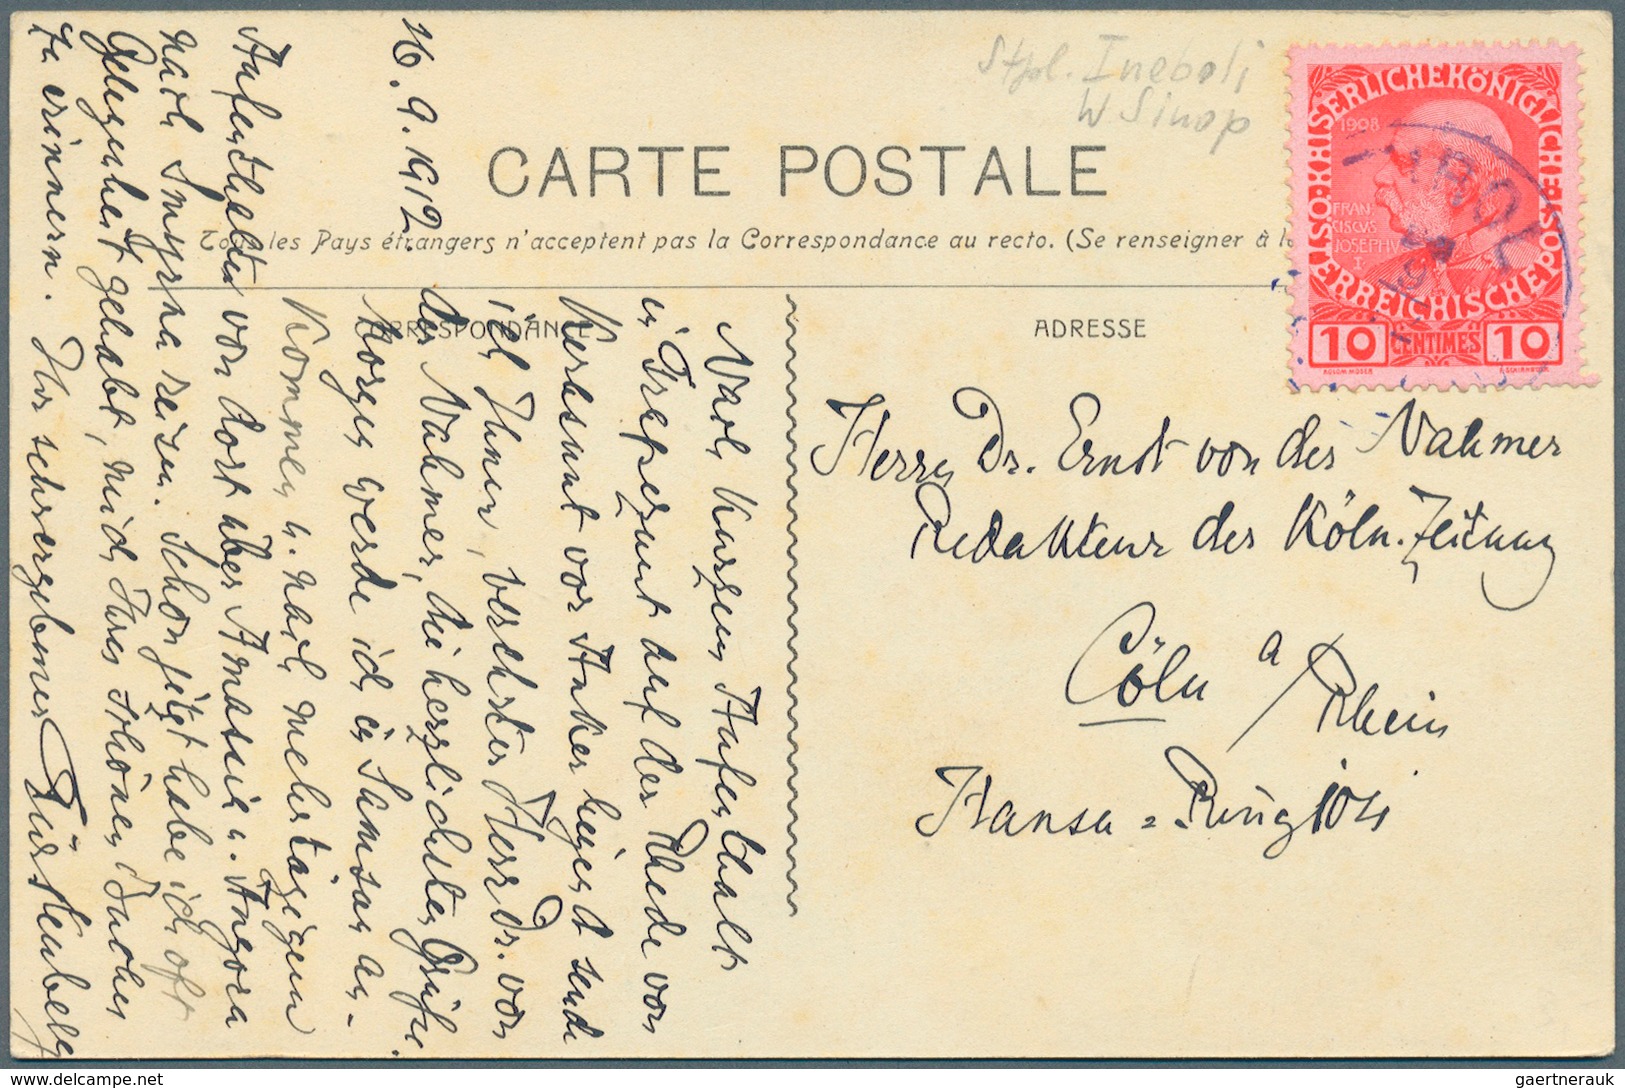 Stpl. Ineboli
W Sinop
CARTE POSTALE
Tous les Pays étrangers n'acceptent pas la Correspondance au recto. (Se renseigner à la
CORRESPONDANCE
ADRESSE
KAISERLICHE KÖNIGLICHE
ÖSTERREICHISCHE POST
1908
FRAN
CISCVS
JOSEPHVS
I.
10 CENTIMES 10
KOLOM. MOSER
F. SCHIRNBÖCK
Herrn Dr. Ernst von der Nahmer
Redakteur der Köln. Zeitung
Cöln a/Rhein
Hansa-Ring 104
16.9.1912.
Nach kurzem Aufenthalt
in Trapezunt auf der Rhede von
Kerasunt vor Anker liegend sende
ich Ihnen, verehrter Herr Dr. von
der Nahmer, die herzlichsten Grüße.
Morgen werde ich in Samsun an-
kommen u. nach mehrtägigem
Aufenthalte von dort über Amassia u. Angora
nach Smyrna reisen. Schon jetzt habe ich oft
Gelegenheit gehabt, mich Ihres schönen Buches
zu erinnern. Ihr sehr ergebener Fürstenberg
gaertnerauk
www.delcampe.net